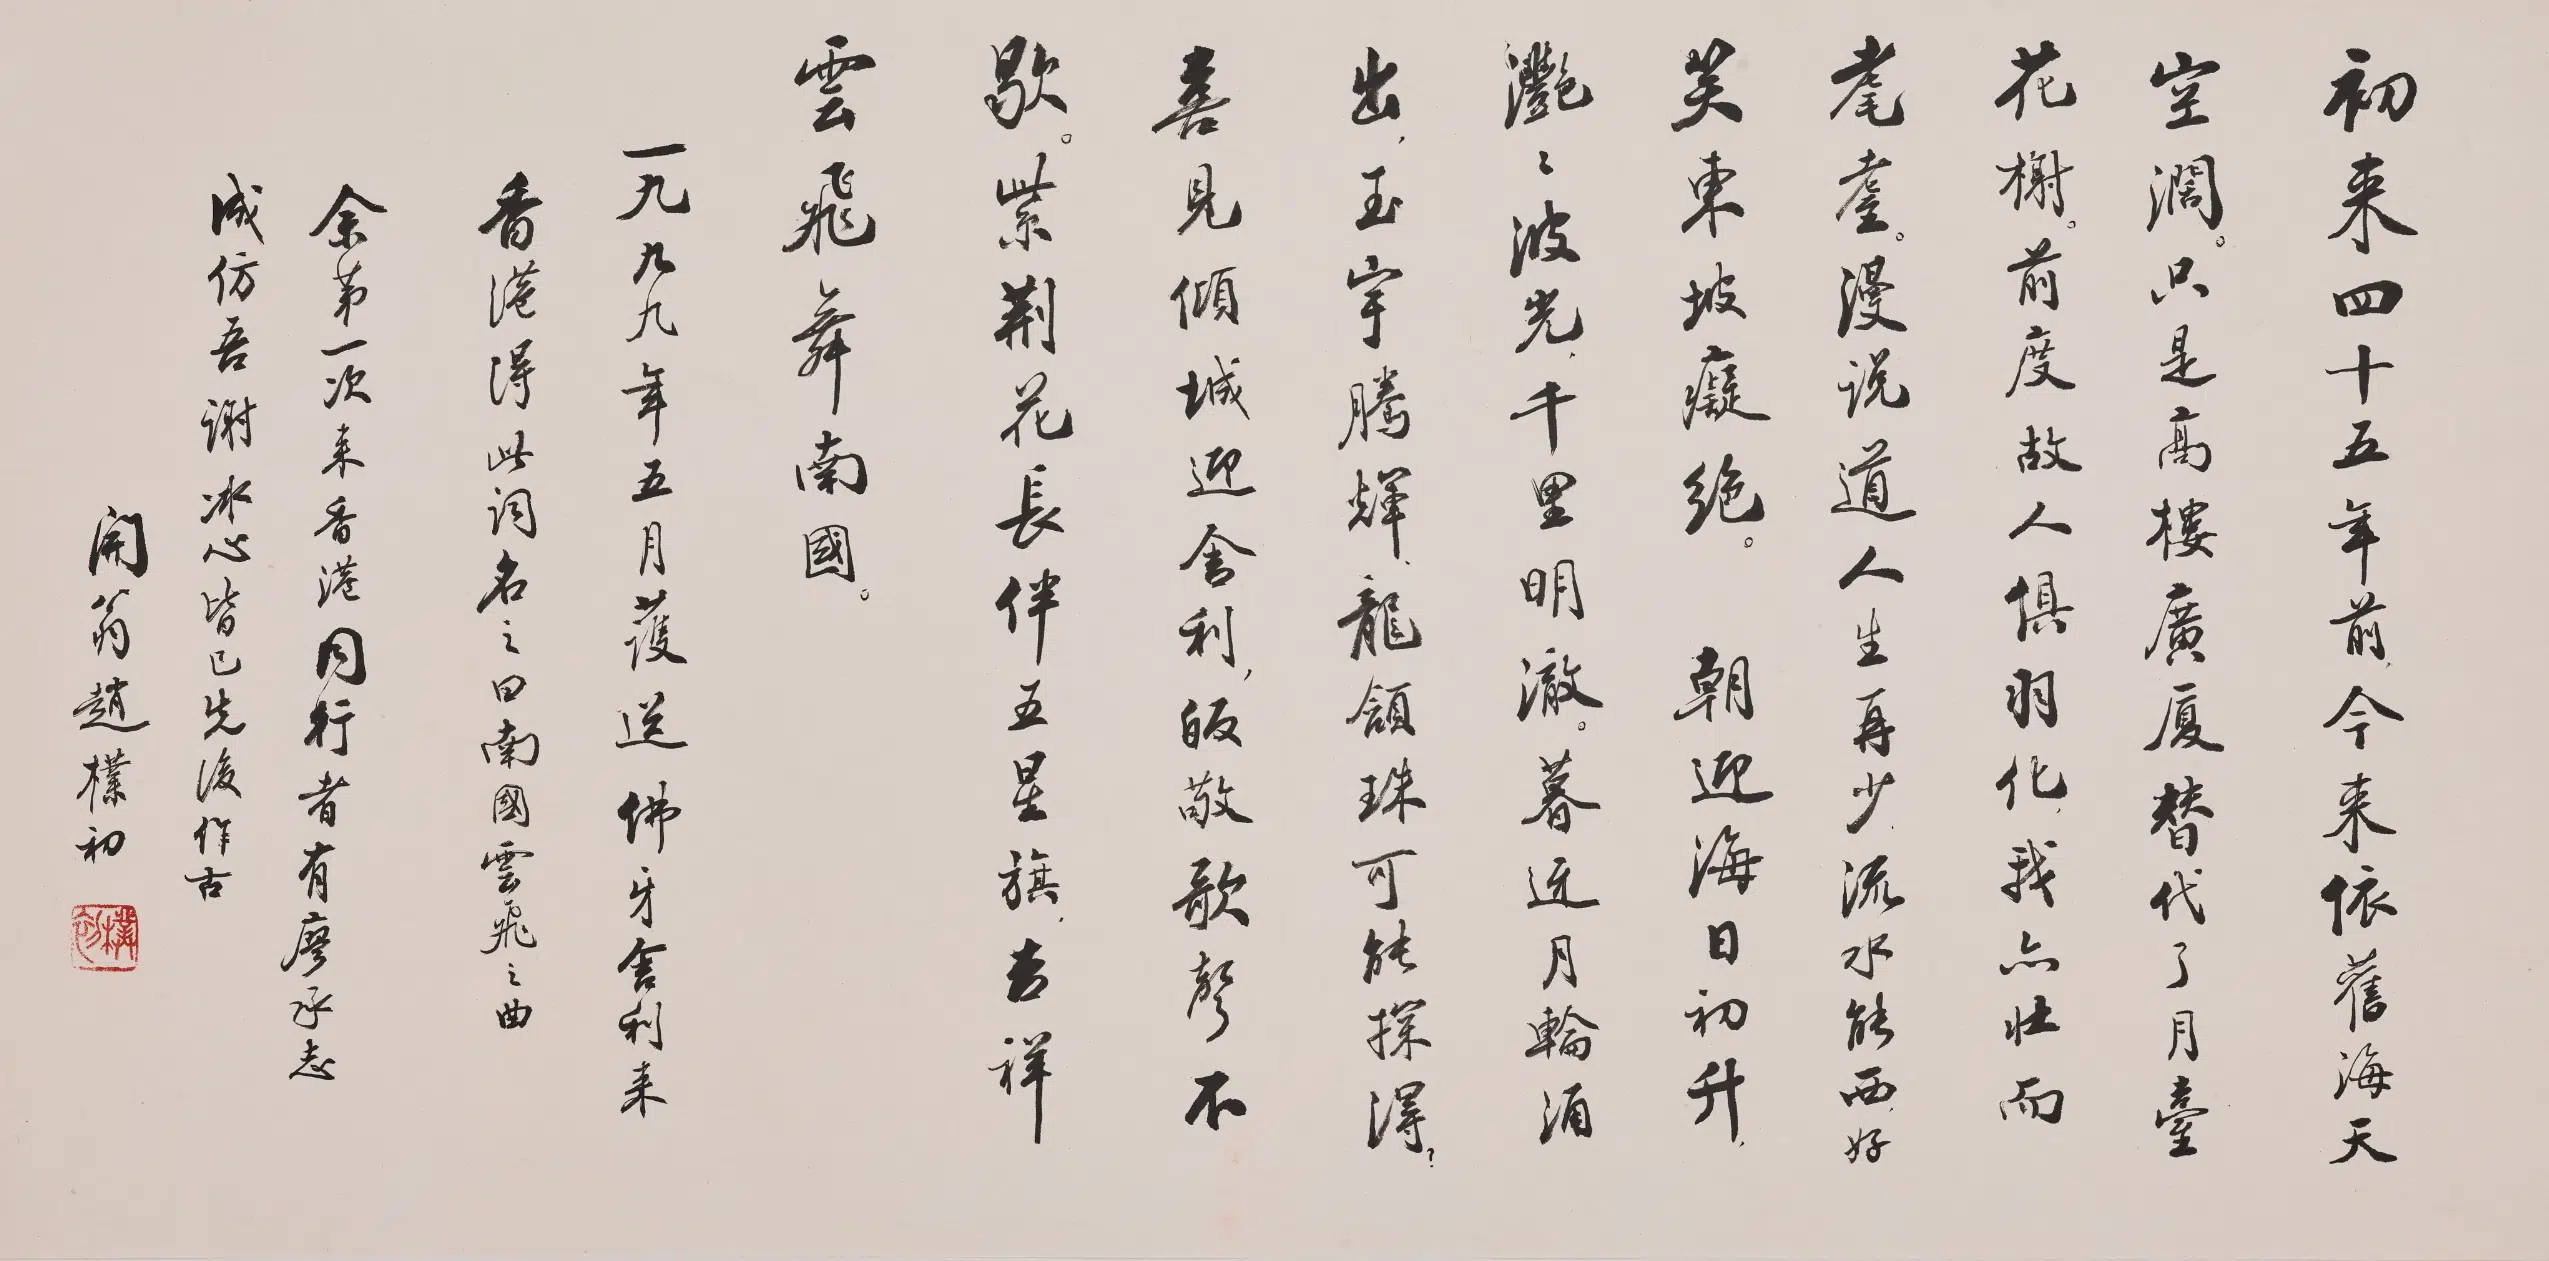 初来四十五年前，今来依舊海天
空濶。只是高樓廣廈替代了月臺
花榭。前度故人俱羽化，我亦壮而
耄耋。漫说道人生再少，流水能西，好
笑東坡癡絕。 朝迎海日初升，
灔〻波光，千里明澈。暮近月輪涌
出，玉宇騰輝，龍頷珠可能探得？
喜見傾城迎舍利，皈敬歌聲不
歇。紫荆花長伴五星旗，吉祥
雲飛舞南國。
一九九九年五月護送佛牙舍利来
香港得此词名之曰南國雲飛之曲
余第一次来香港同行者有廖承志
成仿吾谢冰心皆已先後作古
開翁趙樸初
樸初